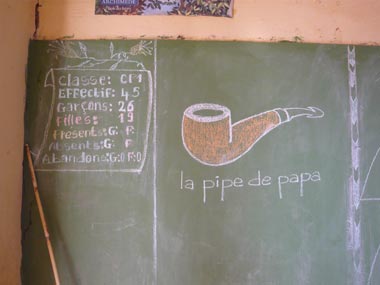 Classe: CM1
Effectif: 45
Garçons: 26
Filles: 19
Présents: G: F:
Absents: G: F:
Abandons: G:0 F:0
la pipe de papa